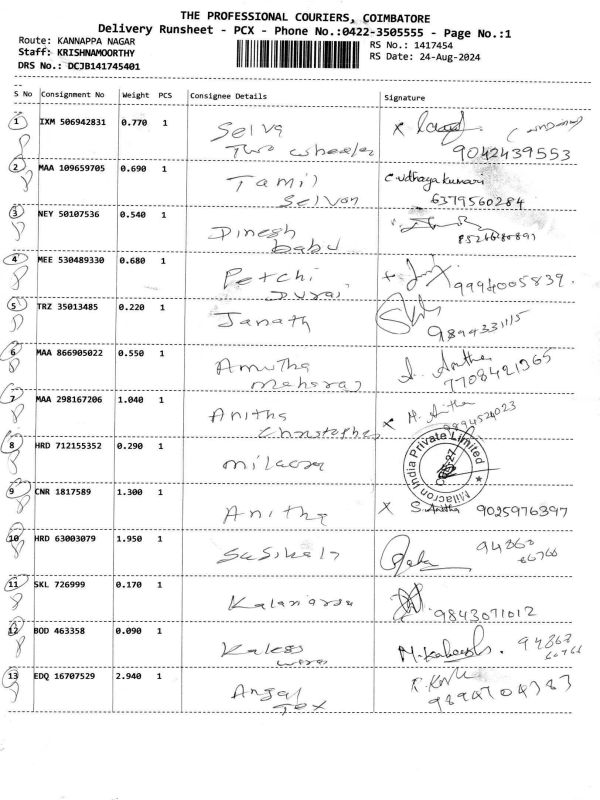 THE PROFESSIONAL COURIERS, COIMBATORE
Delivery Runsheet - PCX - Phone No.:0422-3505555 - Page No.:1
Route: KANNAPPA NAGAR
RS No.: 1417454
Staff: KRISHNAMOORTHY
RS Date: 24-Aug-2024
DRS No.: DCJB141745401
S No Consignment No Weight PCS Consignee Details Signature
1 IXM 506942831 0.770 1 Selva
Two wheeler
9042439553
2 MAA 109659705 0.690 1 Tamil
Selvan
C. udhaya kumari
6379560284
3 NEY 50107536 0.540 1 Dinesh
babu
4 MEE 530489330 0.680 1 Petchi
Durai
9994005839.
5 TRZ 35013485 0.220 1 Janath
9894331115
6 MAA 866905022 0.550 1 Amutha
Maharaj
A. Anitha
7708421365
7 MAA 298167206 1.040 1 Anitha
Christopher
x M. Anitha
9994524023
8 HRD 712155352 0.290 1 milacron
Milacron India Private Limited
9 CNR 1817589 1.300 1 Anitha
x S. Anitha 9025976397
10 HRD 63003079 1.950 1 Sasikala
94868
66766
11 SKL 726999 0.170 1
9843071012
12 BOD 463358 0.090 1
94868
66766
13 EDQ 16707529 2.940 1 Angal
Tex
9894704383